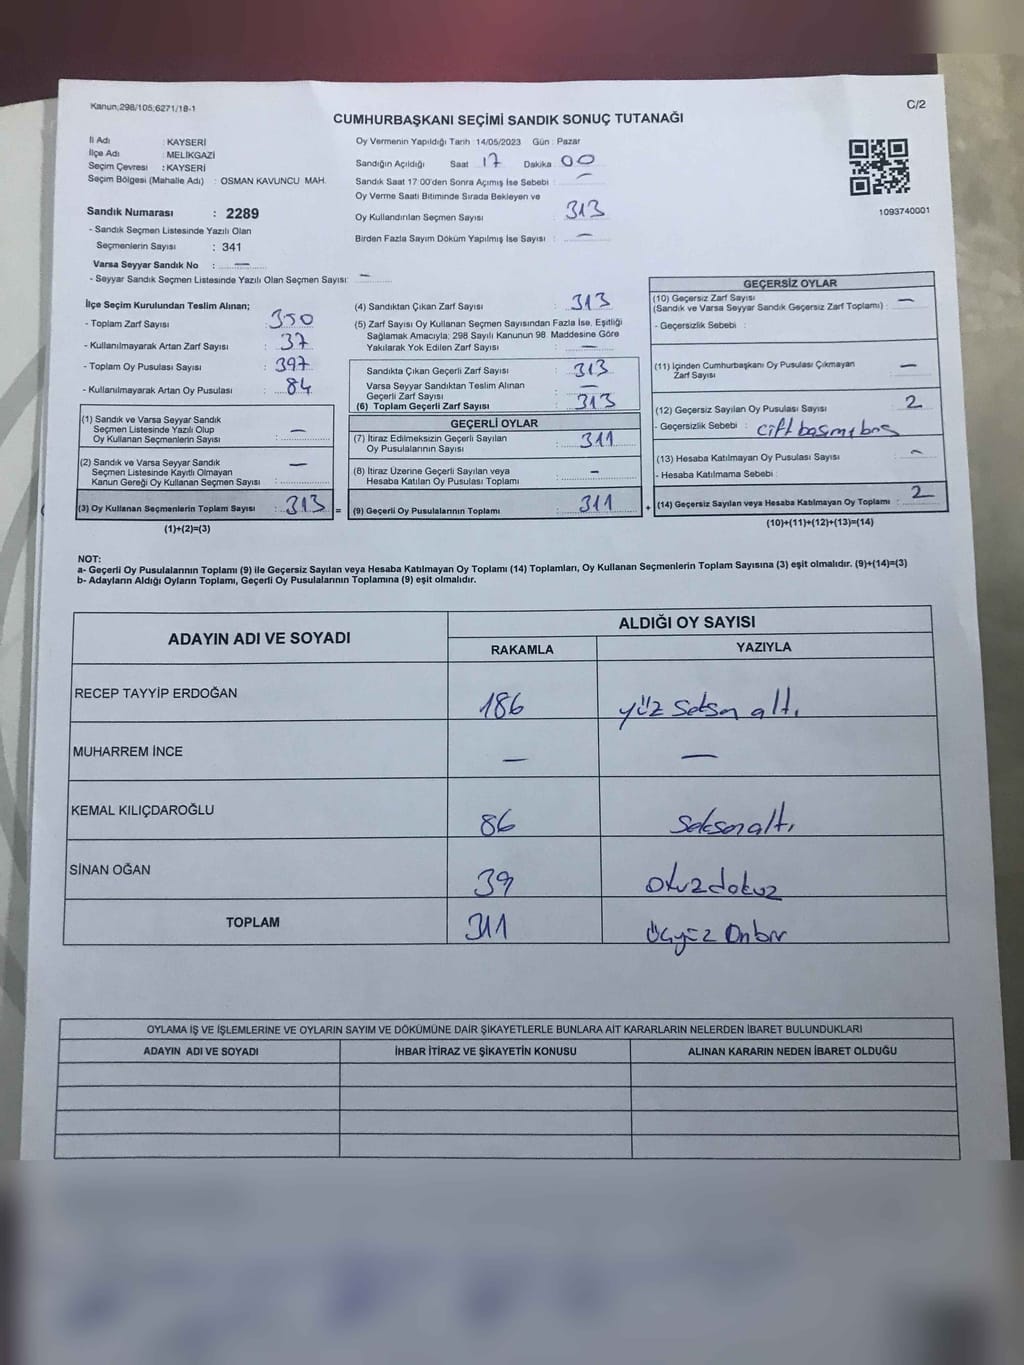 Kanun;298/105;6271/18-1
C/2
CUMHURBAŞKANI SEÇİMİ SANDIK SONUÇ TUTANAĞI
İl Adı : KAYSERİ
İlçe Adı : MELİKGAZİ
Seçim Çevresi : KAYSERİ
Seçim Bölgesi (Mahalle Adı) : OSMAN KAVUNCU MAH.
Sandık Numarası : 2289
- Sandık Seçmen Listesinde Yazılı Olan
Seçmenlerin Sayısı : 341
Varsa Seyyar Sandık No : —
- Seyyar Sandık Seçmen Listesinde Yazılı Olan Seçmen Sayısı: —
Oy Vermenin Yapıldığı Tarih : 14/05/2023 Gün : Pazar
Sandığın Açıldığı Saat 17 Dakika 00
Sandık Saat 17:00'den Sonra Açımış İse Sebebi : —
Oy Verme Saati Bitiminde Sırada Bekleyen ve
Oy Kullandırılan Seçmen Sayısı : 313
Birden Fazla Sayım Döküm Yapılmış İse Sayısı : —
1093740001
İlçe Seçim Kurulundan Teslim Alınan;
- Toplam Zarf Sayısı : 350
- Kullanılmayarak Artan Zarf Sayısı : 37
- Toplam Oy Pusulası Sayısı : 397
- Kullanılmayarak Artan Oy Pusulası : 84
(1) Sandık ve Varsa Seyyar Sandık
Seçmen Listesinde Yazılı Olup
Oy Kullanan Seçmenlerin Sayısı : —
(2) Sandık ve Varsa Seyyar Sandık
Seçmen Listesinde Kayıtlı Olmayan
Kanun Gereği Oy Kullanan Seçmen Sayısı : —
(3) Oy Kullanan Seçmenlerin Toplam Sayısı : 313 =
(1)+(2)=(3)
(4) Sandıktan Çıkan Zarf Sayısı : 313
(5) Zarf Sayısı Oy Kullanan Seçmen Sayısından Fazla İse, Eşitliği
Sağlamak Amacıyla; 298 Sayılı Kanunun 98. Maddesine Göre
Yakılarak Yok Edilen Zarf Sayısı : —
Sandıkta Çıkan Geçerli Zarf Sayısı : 313
Varsa Seyyar Sandıktan Teslim Alınan
Geçerli Zarf Sayısı : —
(6) Toplam Geçerli Zarf Sayısı : 313
GEÇERLİ OYLAR
(7) İtiraz Edilmeksizin Geçerli Sayılan
Oy Pusulalarının Sayısı : 311
(8) İtiraz Üzerine Geçerli Sayılan veya
Hesaba Katılan Oy Pusulası Toplamı : —
(9) Geçerli Oy Pusulalarının Toplamı : 311 +
GEÇERSİZ OYLAR
(10) Geçersiz Zarf Sayısı
(Sandık ve Varsa Seyyar Sandık Geçersiz Zarf Toplamı) : —
- Geçersizlik Sebebi :
(11) İçinden Cumhurbaşkanı Oy Pusulası Çıkmayan
Zarf Sayısı : —
(12) Geçersiz Sayılan Oy Pusulası Sayısı : 2
- Geçersizlik Sebebi : Çift
(13) Hesaba Katılmayan Oy Pusulası Sayısı : —
- Hesaba Katılmama Sebebi :
(14) Geçersiz Sayılan veya Hesaba Katılmayan Oy Toplamı : 2
(10)+(11)+(12)+(13)=(14)
NOT:
a- Geçerli Oy Pusulalarının Toplamı (9) ile Geçersiz Sayılan veya Hesaba Katılmayan Oy Toplamı (14) Toplamları, Oy Kullanan Seçmenlerin Toplam Sayısına (3) eşit olmalıdır. (9)+(14)=(3)
b- Adayların Aldığı Oyların Toplamı, Geçerli Oy Pusulalarının Toplamına (9) eşit olmalıdır.
ADAYIN ADI VE SOYADI
ALDIĞI OY SAYISI
RAKAMLA YAZIYLA
RECEP TAYYİP ERDOĞAN 186 yüz seksen altı
MUHARREM İNCE — —
KEMAL KILIÇDAROĞLU 86 Seksenaltı
SİNAN OĞAN 39 otuzdokuz
TOPLAM 311 üçyüz Onbir
OYLAMA İŞ VE İŞLEMLERİNE VE OYLARIN SAYIM VE DÖKÜMÜNE DAİR ŞİKAYETLERLE BUNLARA AİT KARARLARIN NELERDEN İBARET BULUNDUKLARI
ADAYIN ADI VE SOYADI İHBAR İTİRAZ VE ŞİKAYETİN KONUSU ALINAN KARARIN NEDEN İBARET OLDUĞU